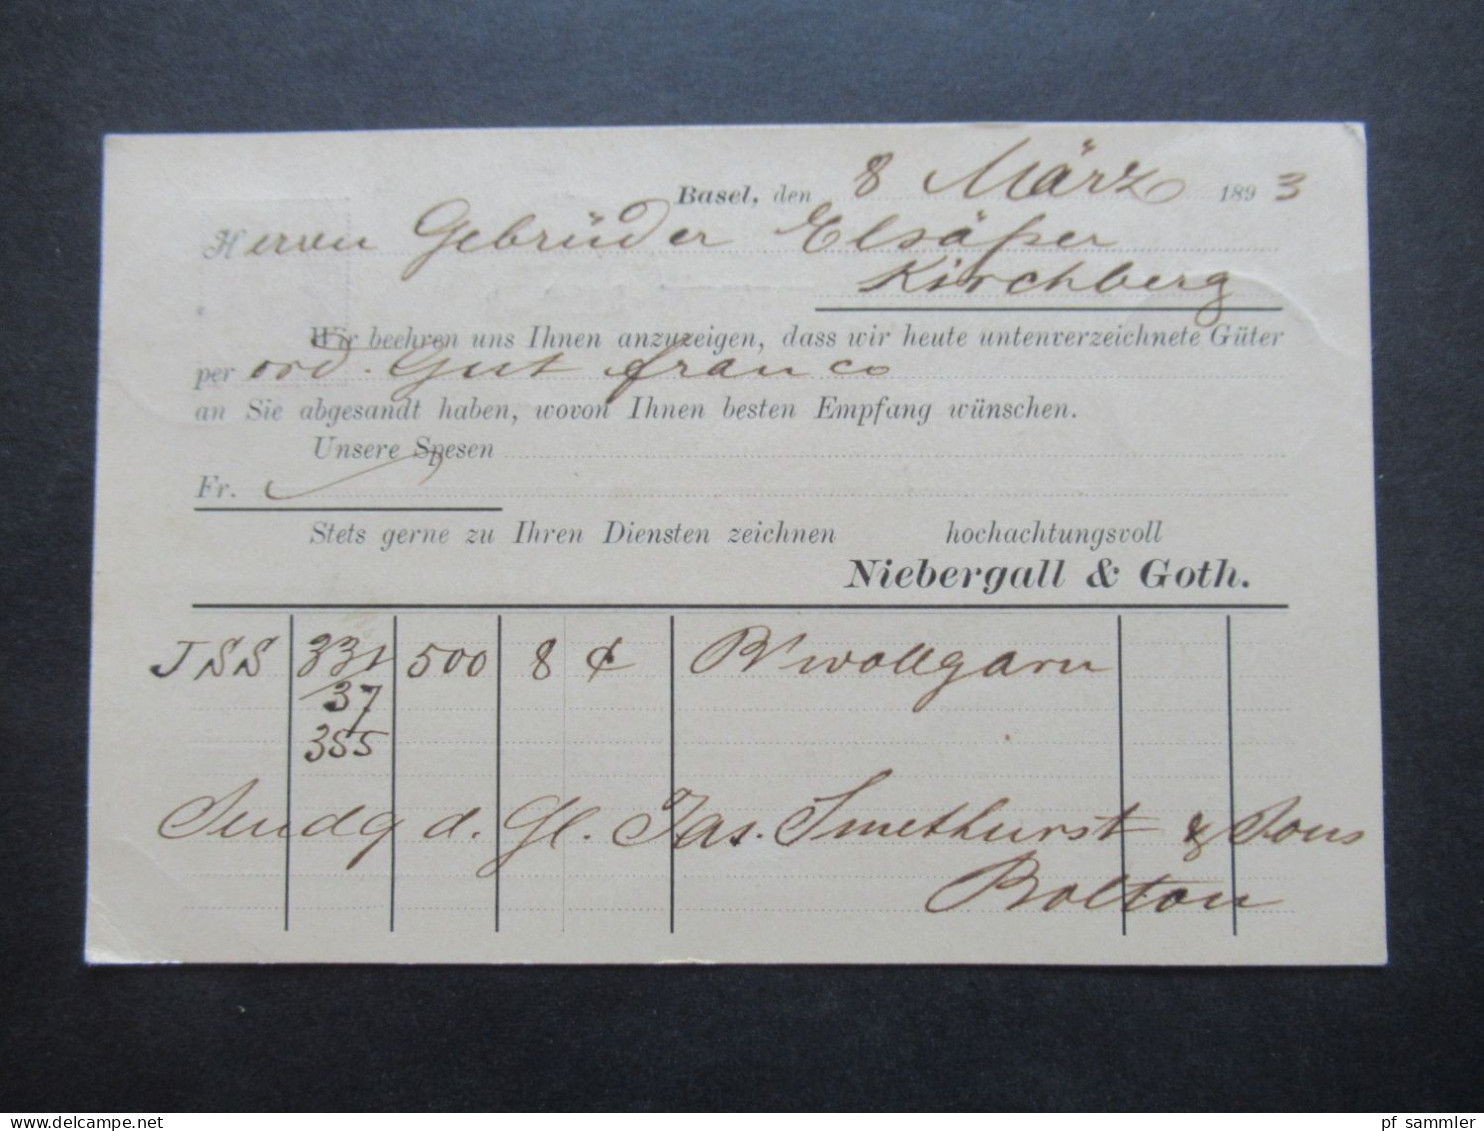 Basel, den 8 März 1893
Herren Gebrüder Elsäßer
Kirchberg
Wir beehren uns Ihnen anzuzeigen, dass wir heute untenverzeichnete Güter
per ord. Gut franco
an Sie abgesandt haben, wovon Ihnen besten Empfang wünschen.
Unsere Spesen
Fr.
Stets gerne zu Ihren Diensten zeichnen hochachtungsvoll
Niebergall & Goth.
JSS 331/ 500 8 B'wollgarn
37
355
Sendg d. Gl. Jas. Smethurst & Sons
Bolton
www.delcampe.net
pf_sammler